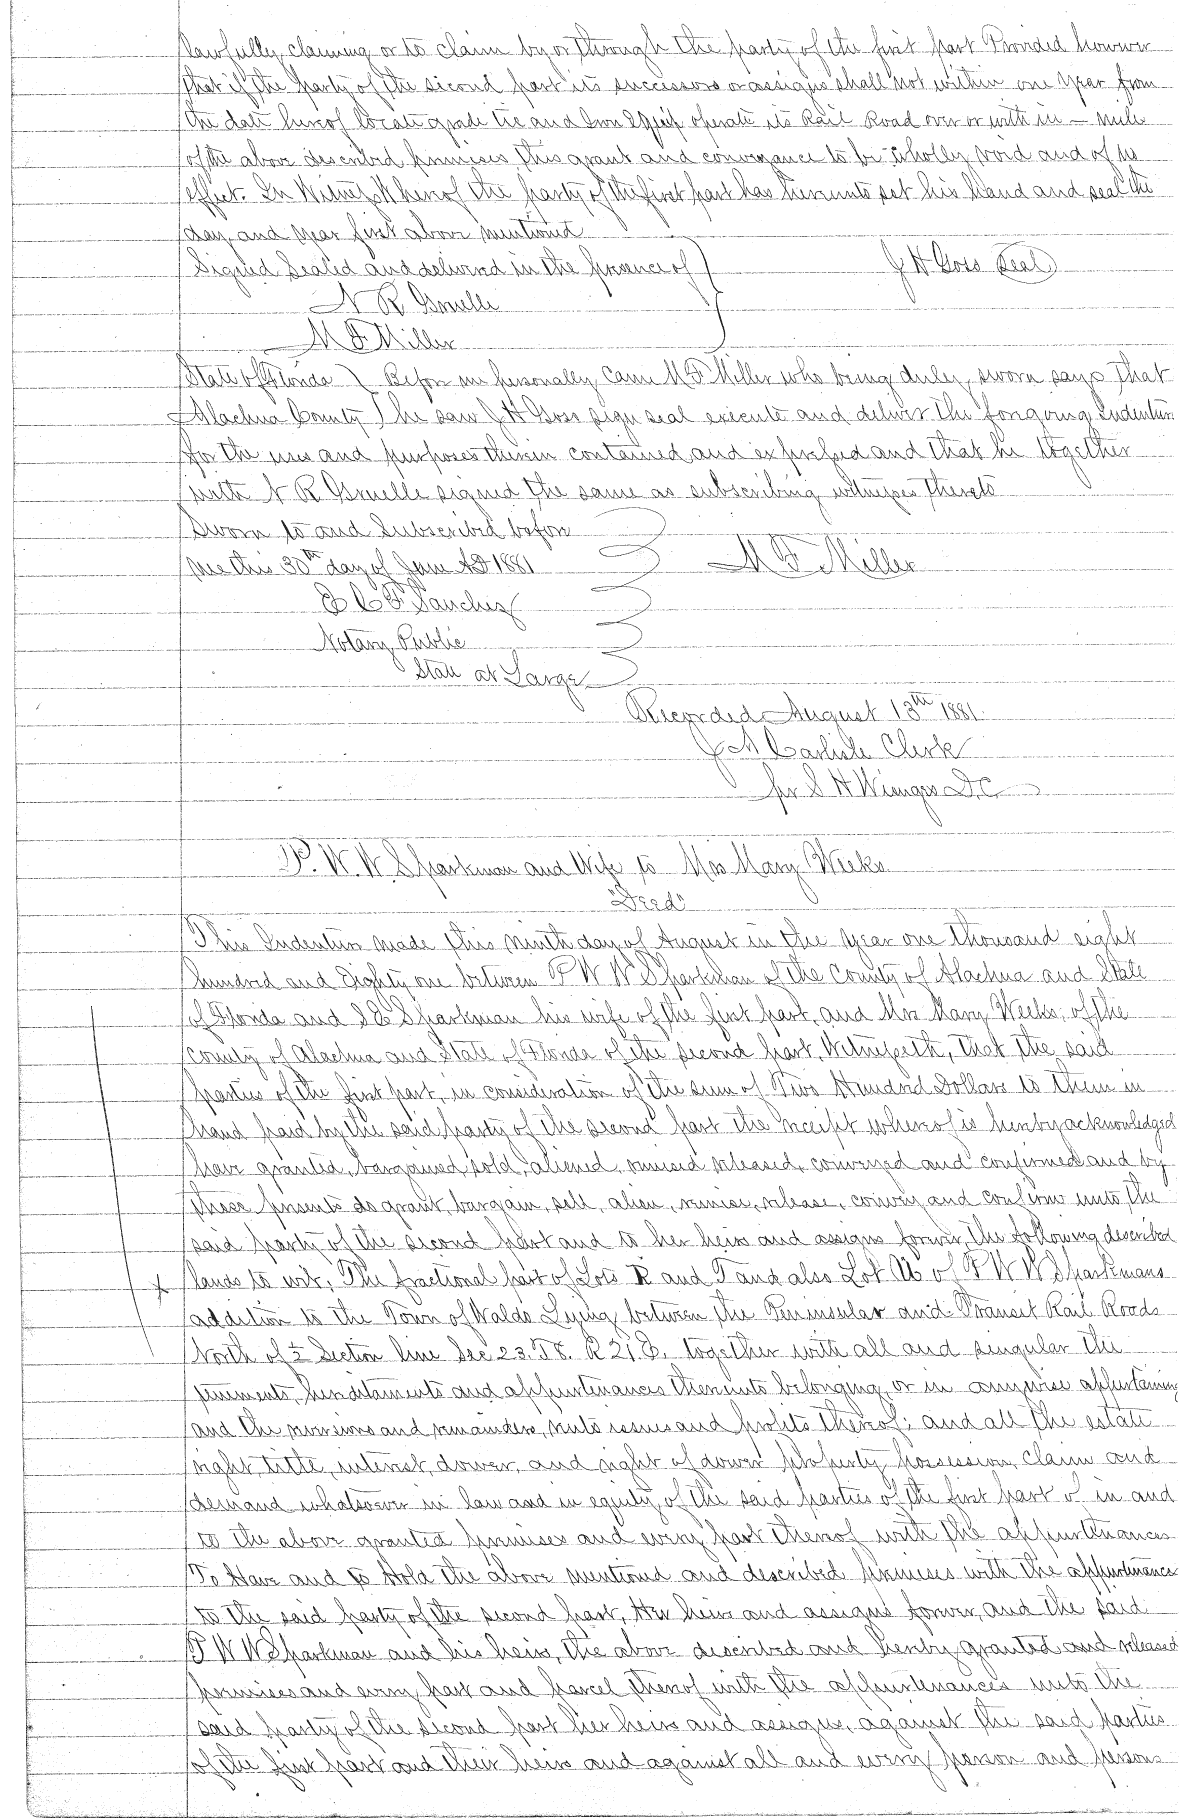 lawfully claiming or to claim by or through the party of the first part Provided however
that if the party of the second part its successors or assigns shall not within one year from
the date hereof locate grade tie and Iron & operate its Rail Road over or with in — mile
of the above described premises this grant and conveyance to be wholly void and of no
effect. In Witness Whereof the party of the first part has hereunto set his hand and seal the
day and year first above mentioned
Signed Sealed and delivered in the presence of J H Goss Seal
N R Gruelle
M F Miller
State of Florida } Before me personally came M F Miller who being duly sworn says that
Alachua County } he saw J H Goss sign seal execute and deliver the foregoing Indenture
for the uses and purposes therein contained and expressed and that he together
with N R Gruelle signed the same as subscribing witnesses thereto
Sworn to and Subscribed before
me this 30th day of June AD 1881 M F Miller
E C F Sanchez
Notary Public
State at Large
Recorded August 13th 1881
J A Carlisle Clerk
per S H Wienges D.C
P. W. W. Sparkman and Wife to Mrs Mary Weeks
"Deed"
This Indenture made this ninth day of August in the year one thousand eight
hundred and Eighty one between P W W Sparkman of the County of Alachua and State
of Florida and S E Sparkman his wife of the first part, and Mrs Mary Weeks, of the
County of Alachua and State of Florida of the second part, Witnesseth, that the said
parties of the first part, in consideration of the sum of Two Hundred Dollars to them in
hand paid by the said party of the second part the receipt whereof is hereby acknowledged
have granted, bargained, sold, aliened, remised released, conveyed and confirmed and by
these presents do grant, bargain, sell, alien, remise, release, convey and confirm unto the
said party of the second part and to her heirs and assigns forever, the following described
x lands to wit; The fractional part of Lots R and T and also Lot U of P W W Sparkmans
addition to the Town of Waldo Lying between the Peninsular and Transit Rail Roads
North of ½ Section line Sec 23. T 8. R 21. E. together with all and singular the
tenements, hereditaments and appurtenances thereunto belonging, or in anywise appertaining
and the reversions and remainders, rents issues and profits thereof; and all the estate
right, title, interest, dower, and right of dower property, possession, claim and
demand whatsoever in law and in equity, of the said parties of the first part of in and
to the above granted premises and every part thereof with the appurtenances
To Have and to Hold the above mentioned and described premises with the appurtenances
to the said party of the second part, Her heirs and assigns forever, and the said
P W W Sparkman and his heirs, the above described and hereby granted and released
premises and every part and parcel thereof with the appurtenances unto the
said party of the second part her heirs and assigns, against the said parties
of the first part and their heirs and against all and every person and persons